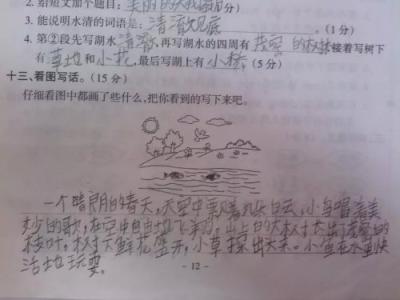 2. 给短文加个题目:美丽的大我 分)
3. 能说明水清的词语是: 清澈见底 。(1分)
4. 第②段先写湖水清澈,再写湖水的四周有 的树林接着写树下
有草地和小花,最后写湖上有小桥(5分)
十三、看图写话。(15分)
仔细看图中都画了些什么,把你看到的写下来吧。
一个晴朗的春天,天空中飘着几朵白云,小鸟唱着美
妙的歌,在空中自由地飞 。山上的大树长出了茂密的
枝叶,树 鲜花盛开,小草探出头来。小鱼在水里快
活地玩耍。
- 12 -